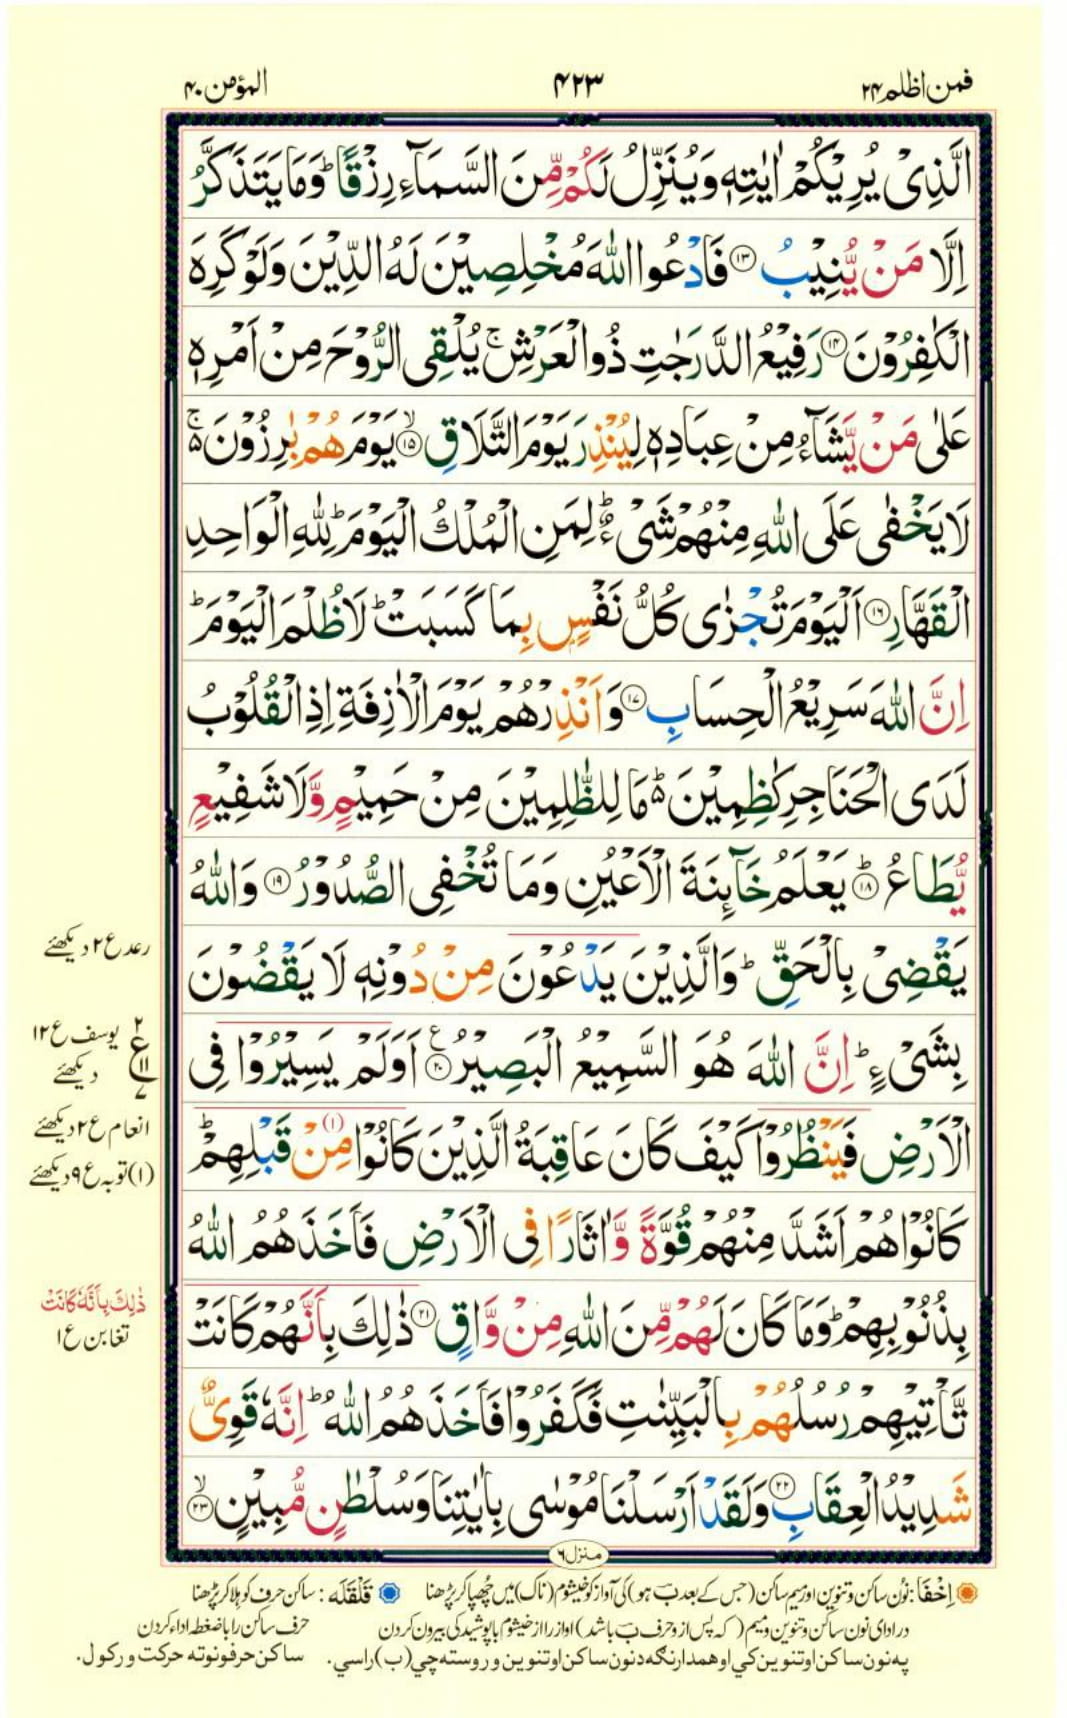 فمن اظلم ۲۴
۴۲۳
المؤمن ۴۰
الَّذِیْ یُرِیْكُمْ اٰیٰتِهٖ وَیُنَزِّلُ لَكُمْ مِّنَ السَّمَآءِ رِزْقًا ؕ وَمَا یَتَذَكَّرُ
اِلَّا مَنْ یُّنِیْبُ ۱۳ فَادْعُوا اللّٰهَ مُخْلِصِیْنَ لَهُ الدِّیْنَ وَلَوْ كَرِهَ
الْكٰفِرُوْنَ ۱۴ رَفِیْعُ الدَّرَجٰتِ ذُو الْعَرْشِ ۚ یُلْقِی الرُّوْحَ مِنْ اَمْرِهٖ
عَلٰی مَنْ یَّشَآءُ مِنْ عِبَادِهٖ لِیُنْذِرَ یَوْمَ التَّلَاقِ ۙ۱۵ یَوْمَ هُمْ بٰرِزُوْنَ ۬ۚ
لَا یَخْفٰی عَلَی اللّٰهِ مِنْهُمْ شَیْءٌ ؕ لِمَنِ الْمُلْكُ الْیَوْمَ ؕ لِلّٰهِ الْوَاحِدِ
الْقَهَّارِ ۱۶ اَلْیَوْمَ تُجْزٰی كُلُّ نَفْسٍۭ بِمَا كَسَبَتْ ؕ لَا ظُلْمَ الْیَوْمَ ؕ
اِنَّ اللّٰهَ سَرِیْعُ الْحِسَابِ ۱۷ وَاَنْذِرْهُمْ یَوْمَ الْاٰزِفَةِ اِذِ الْقُلُوْبُ
لَدَی الْحَنَاجِرِ كٰظِمِیْنَ ۬ؕ مَا لِلظّٰلِمِیْنَ مِنْ حَمِیْمٍ وَّلَا شَفِیْعٍ
یُّطَاعُ ؕ۱۸ یَعْلَمُ خَآئِنَةَ الْاَعْیُنِ وَمَا تُخْفِی الصُّدُوْرُ ۱۹ وَاللّٰهُ
یَقْضِیْ بِالْحَقِّ ؕ وَالَّذِیْنَ یَدْعُوْنَ مِنْ دُوْنِهٖ لَا یَقْضُوْنَ
بِشَیْءٍ ؕ اِنَّ اللّٰهَ هُوَ السَّمِیْعُ الْبَصِیْرُ ۲۰ ع اَوَلَمْ یَسِیْرُوْا فِی
الْاَرْضِ فَیَنْظُرُوْا كَیْفَ كَانَ عَاقِبَةُ الَّذِیْنَ كَانُوْا (۱) مِنْ قَبْلِهِمْ ؕ
كَانُوْا هُمْ اَشَدَّ مِنْهُمْ قُوَّةً وَّاٰثَارًا فِی الْاَرْضِ فَاَخَذَهُمُ اللّٰهُ
بِذُنُوْبِهِمْ ؕ وَمَا كَانَ لَهُمْ مِّنَ اللّٰهِ مِنْ وَّاقٍ ۲۱ ذٰلِكَ بِاَنَّهُمْ كَانَتْ
تَّاْتِیْهِمْ رُسُلُهُمْ بِالْبَیِّنٰتِ فَكَفَرُوْا فَاَخَذَهُمُ اللّٰهُ ؕ اِنَّهٗ قَوِیٌّ
شَدِیْدُ الْعِقَابِ ۲۲ وَلَقَدْ اَرْسَلْنَا مُوْسٰی بِاٰیٰتِنَا وَسُلْطٰنٍ مُّبِیْنٍ ۙ۲۳
رعد ع ۲ دیکھئے
۲ ع ۱۱ ۷
یوسف ع ۱۲
دیکھئے
انعام ع ۲ دیکھئے
(۱) توبہ ع ۹ دیکھئے
ذٰلِكَ بِاَنَّهٗ كَانَتْ
تغابن ع ۱
منزل ۶
اِخْفَا: نُون ساکن وتنوین اور میم ساکن (جس کے بعد بَ ہو) کی آواز کو خیشوم (ناک) میں چُھپا کر پڑھنا قَلْقَلَه: ساکن حرف کو ہلا کر پڑھنا
در ادای نون ساکن و تنوین و میم (که پس از و حرف بَ باشد) اواز را از خیشوم با پوشیدگی بیرون کردن حرف ساکن را با ضغطه اداء کردن
په نون ساکن او تنوین کي او همدارنګه د نون ساکن او تنوین وروسته چي (ب) راسي. ساکن حرفونو ته حرکت ورکول.